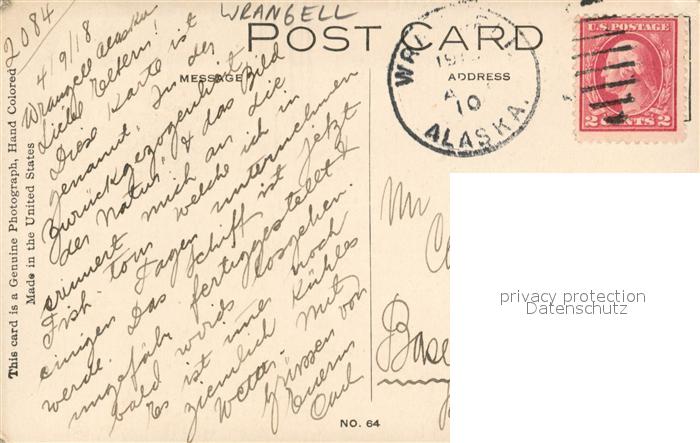 2084
WRANGELL
POST CARD
MESSAGE
ADDRESS
This card is a Genuine Photograph, Hand Colored
Made in the United States
4/9/18
Wrangell Alaska
Liebe Eltern!
Diese Karte ist
genannt "In der
Zurückgezogenheit
der Natur", & das Bild
erinnert mich an die
Fish tour welche ich in
einigen Tagen unternehmen
werde. Das Schiff ist jetzt
ungefähr fertiggestellt &
bald wirds losgehen.
Es ist immer noch
ziemlich kühles
Wetter. Mit
Grüssen von
Euerm
Carl
NO. 64
WR
10
ALASKA.
U.S. POSTAGE
2 CENTS 2
Mr
Base
privacy protection
Datenschutz